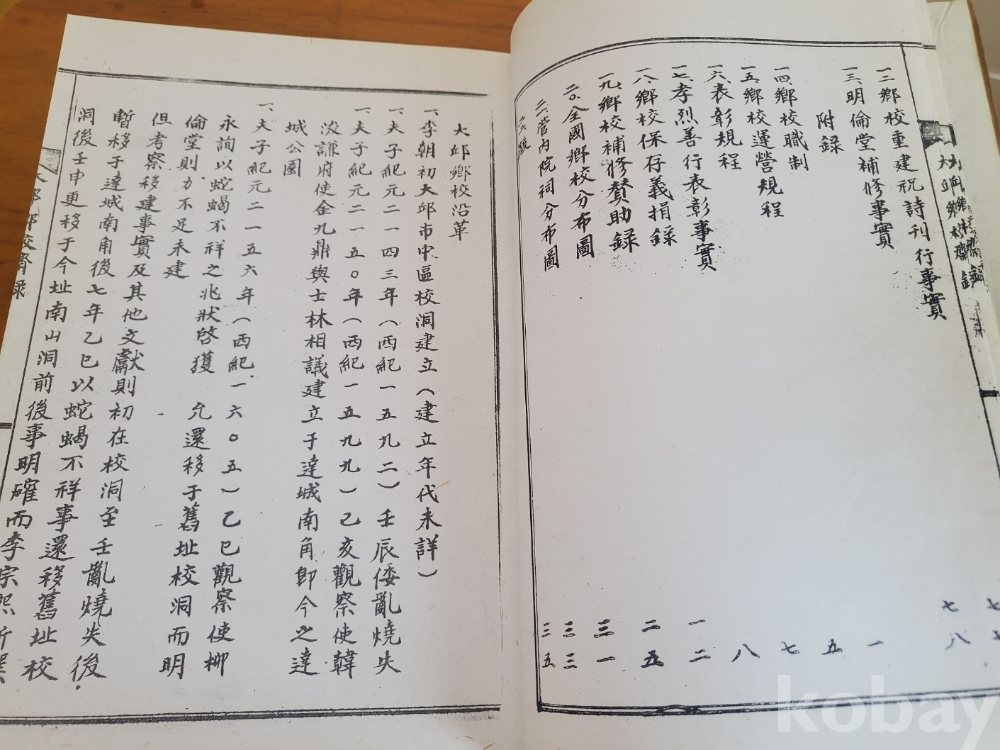 一二鄕校重建祝詩刊行事實 七七
一三、明倫堂補修事實 七八
附錄
一四、鄕校職制 一
一五、鄕校運營規程 五
一六、表彰規程 七
一七、孝烈善行表彰事實 八
一八、鄕校保存義捐錄 一二
一九、鄕校補修贊助錄 二五
二〇、全國鄕校分布圖 三一
二一、管內院祠分布圖 三三
三五
大邱鄕校沿革
一、李朝初大邱市中區校洞建立(建立年代未詳)
一、夫子紀元二一四三年(西紀一五九二)壬辰倭亂燒失
一、夫子紀元二一五〇年(西紀一五九九)己亥觀察使韓
浚謙府使金九鼎與士林相議建立于達城南角卽今之達
城公園
一、夫子紀元二一五六年(西紀一六〇五)乙巳觀察使柳
永詢以蛇蝎不祥之兆狀啓獲 允還移于舊址校洞而明
倫堂則力不足未建
但考察移建事實及其他文獻則初在校洞至壬亂燒失後
暫移于達城南角後七年乙巳以蛇蝎不祥事還移舊址校
洞後壬申更移于今址南山洞前後事明確而李宗熙所撰
kobay